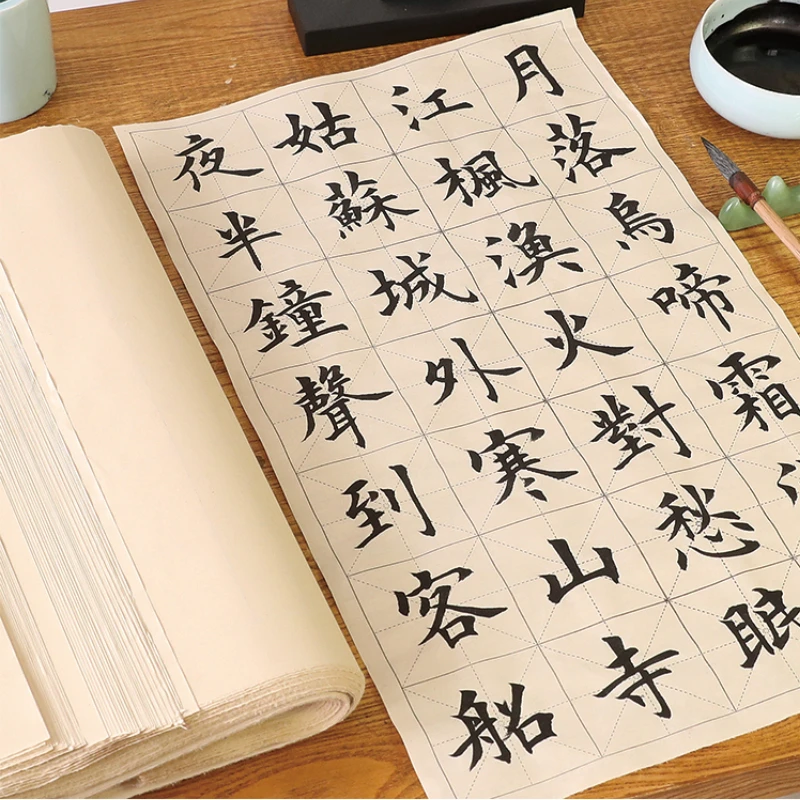 月落烏啼霜
江楓漁火對愁眠
姑蘇城外寒山寺
夜半鐘聲到客船